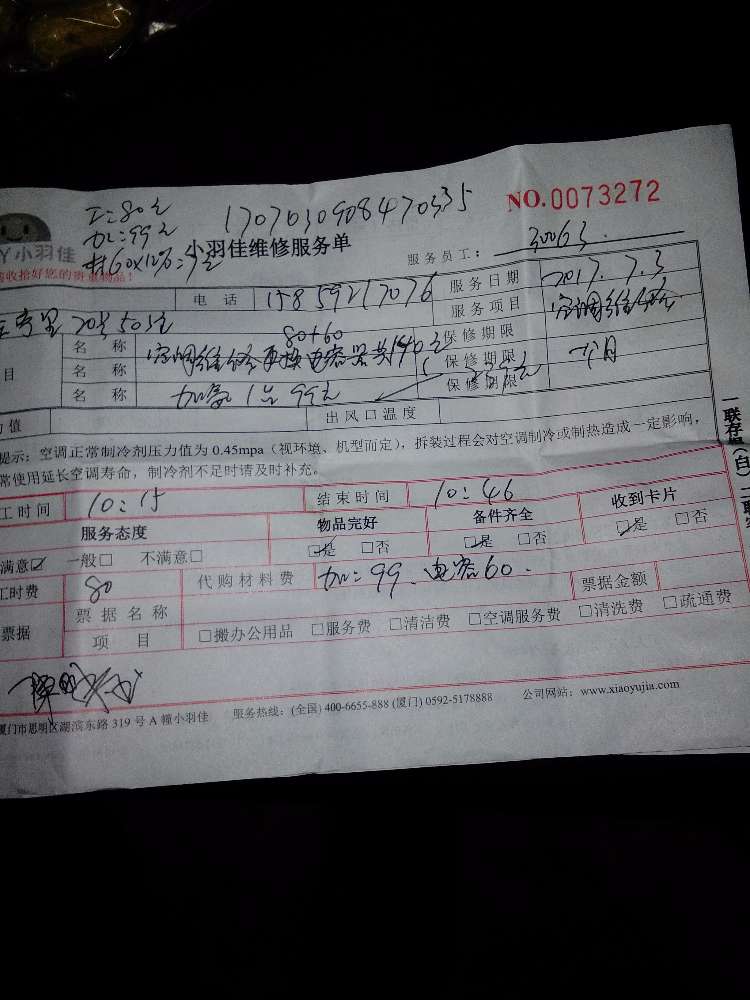 工:80元
加:99元
材60x12%=7元
1707030908470335
NO.0073272
小羽佳
小羽佳维修服务单
服务员工: 30063
收拾好您的贵重物品!
电 话 15859217076
服务日期 2017.7.3
20号503室
服务项目 空调维修
80+60
目 名 称 空调维修更换电容器共140元
保修期限
名 称
保修期限 一个月
名 称 加氟1台99元
保修期限
力值
出风口温度
提示:空调正常制冷剂压力值为 0.45mpa(视环境、机型而定),拆装过程会对空调制冷或制热造成一定影响,
常使用延长空调寿命,制冷剂不足时请及时补充。
工时间 10:15
结束时间 10:46
服务态度
物品完好
备件齐全
收到卡片
满意☑ 一般□ 不满意□
☑是 □否
☑是 □否
☑是 □否
工时费 80 代购材料费 加:99、电容60.
票据金额
票据 票据名称
项 目 □搬办公用品 □服务费 □清洁费 □空调服务费 □清洗费 □疏通费
厦门市思明区湖滨东路 319 号 A 幢小羽佳 服务热线:(全国) 400-6655-888 (厦门) 0592-5178888 公司网站:www.xiaoyujia.com
一联存根(白)